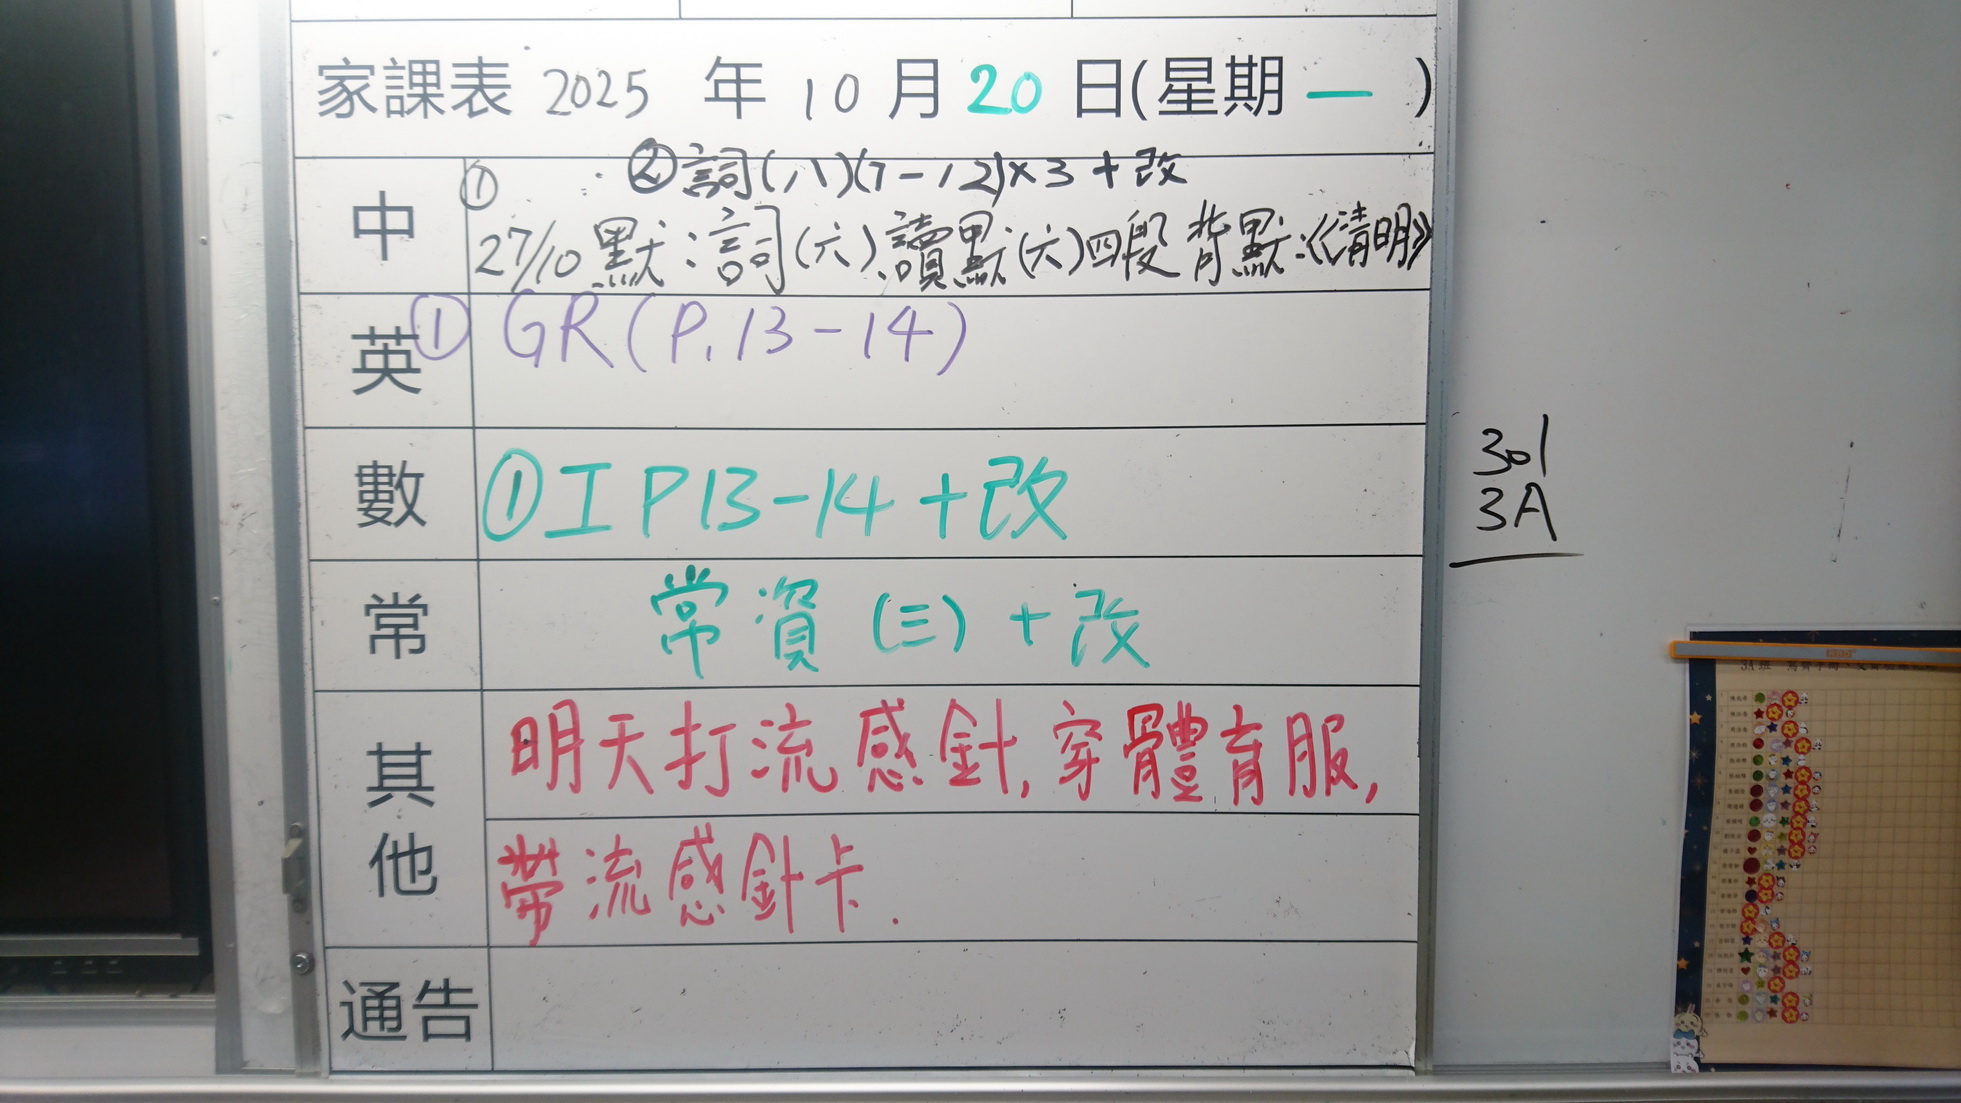 家課表 2025 年 10 月 20 日(星期 一 )
中
① ②詞(八)(7-12)×3+改
27/10 默:詞(六)、讀默(六)四段 背默:《清明》
英
① GR(P.13-14)
數
①工 P13-14+改
常
常資(三)+改
其他
明天打流感針,穿體育服,
帶流感針卡.
通告
301
3A